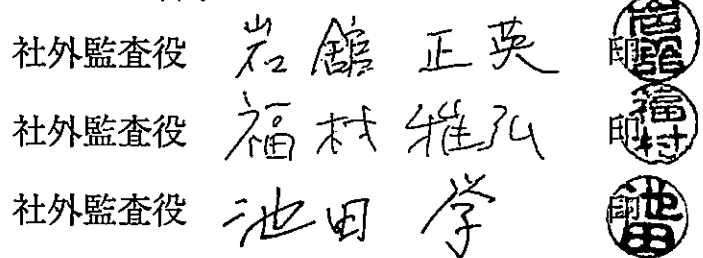 社外監査役 岩舘 正英 印
社外監査役 福村 雅弘 印
社外監査役 池田 学 印